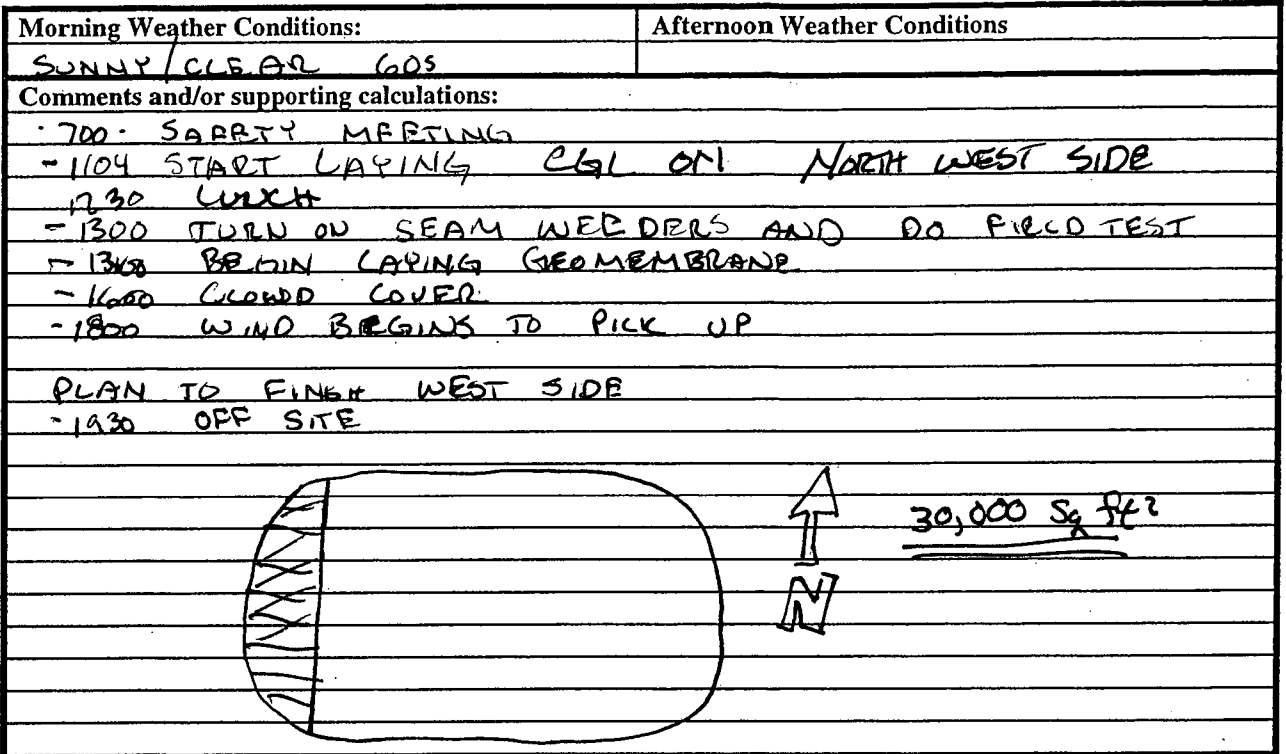 Morning Weather Conditions: Afternoon Weather Conditions
SUNNY/CLEAR 60S
Comments and/or supporting calculations:
·700· SAFETY MEETING
-1104 START LAYING CGL ON NORTH WEST SIDE
1230 LUNCH
-1300 TURN ON SEAM WELDERS AND DO FIELD TEST
- BEGIN LAYING GEOMEMBRANE
-1600 CLOUDD COVER
-1800 WIND BEGINS TO PICK UP
PLAN TO FINSH WEST SIDE
-1930 OFF SITE
30,000 Sq ft²
N